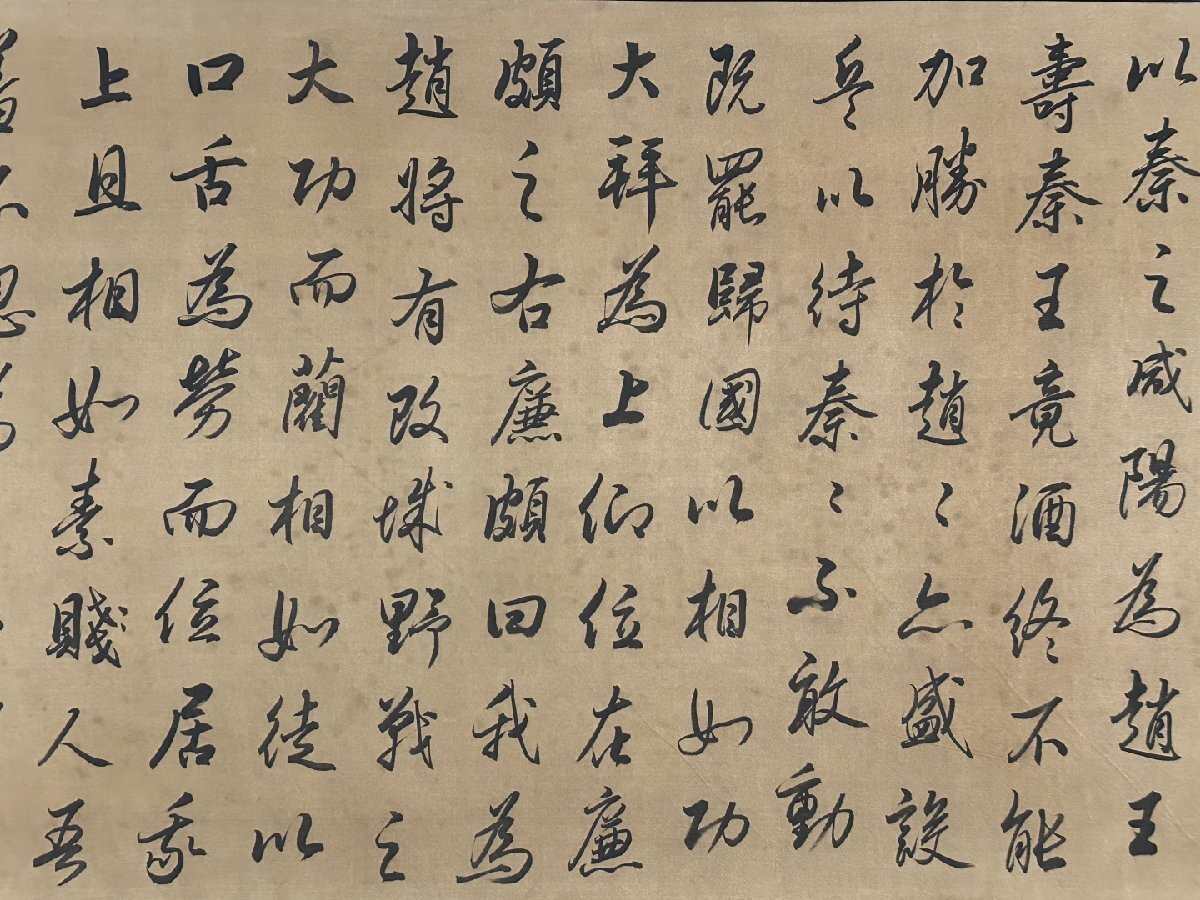 以秦之咸陽為趙王
壽秦王竟酒終不能
加勝於趙〻亦盛設
兵以待秦〻不敢動
既罷歸國以相如功
大拜為上卿位在廉
頗之右廉頗曰我為
趙將有攻城野戰之
大功而藺相如徒以
口舌為勞而位居我
上且相如素賤人吾